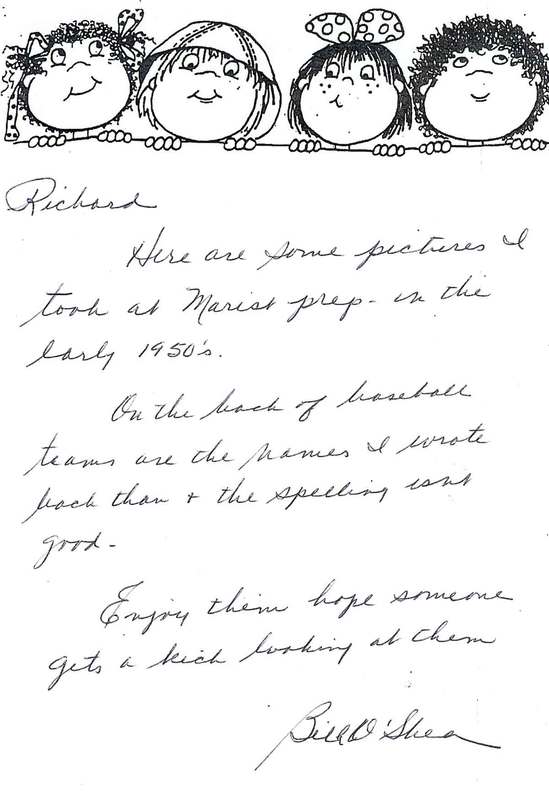 Richard
Here are some pictures I
took at Marist prep - in the
early 1950's.
On the back of baseball
teams are the names I wrote
back than + the spelling isnt
good -
Enjoy them hope someone
gets a kick looking at them
Bill O'Shea